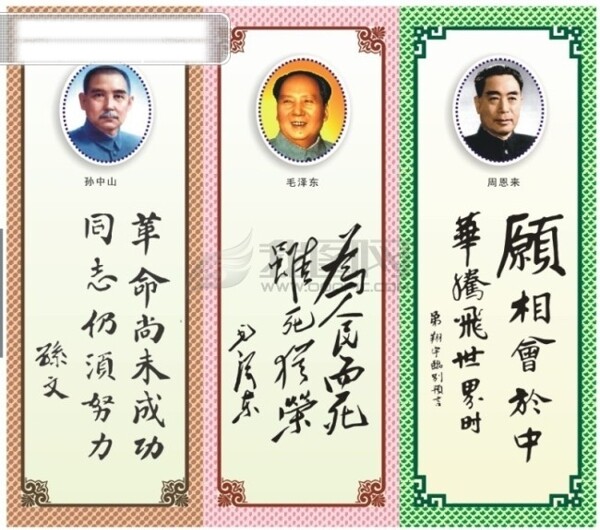 孙中山
革命尚未成功
同志仍須努力
孫文
毛泽东
為人民而死
雖死猶榮
毛澤东
周恩来
願相會於中
華騰飛世界时
弟翔宇臨别预言